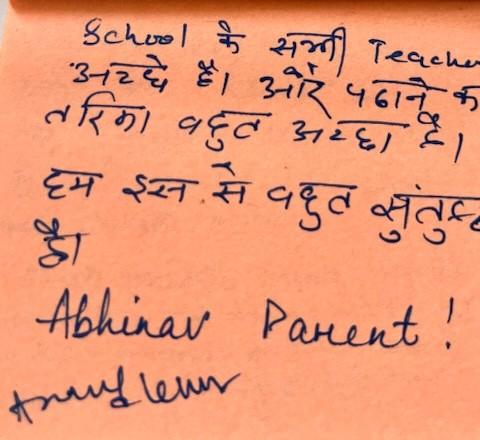 School के सभी Teache
अच्छे है। और पढाने क
तरिका बहुत अच्छा है।
हम इस से बहुत सुंतुष्ट
है।
Abhinav Parent !